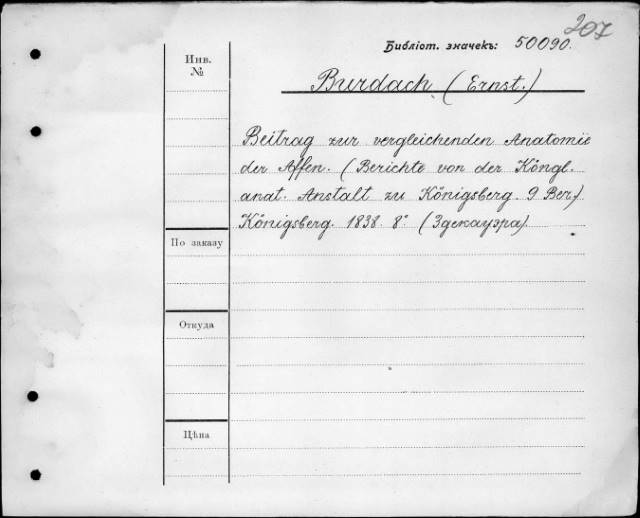 207
Библіот. значекъ: 50090.
Инв.
№
Burdach (Ernst.)
Beitrag zur vergleichenden Anatomie
der Affen. (Berichte von der Köngl.
anat. Anstalt zu Königsberg. 9 Ber.)
Königsberg. 1838. 8°. (Здекауэра).
По заказу
Откуда
Цѣна